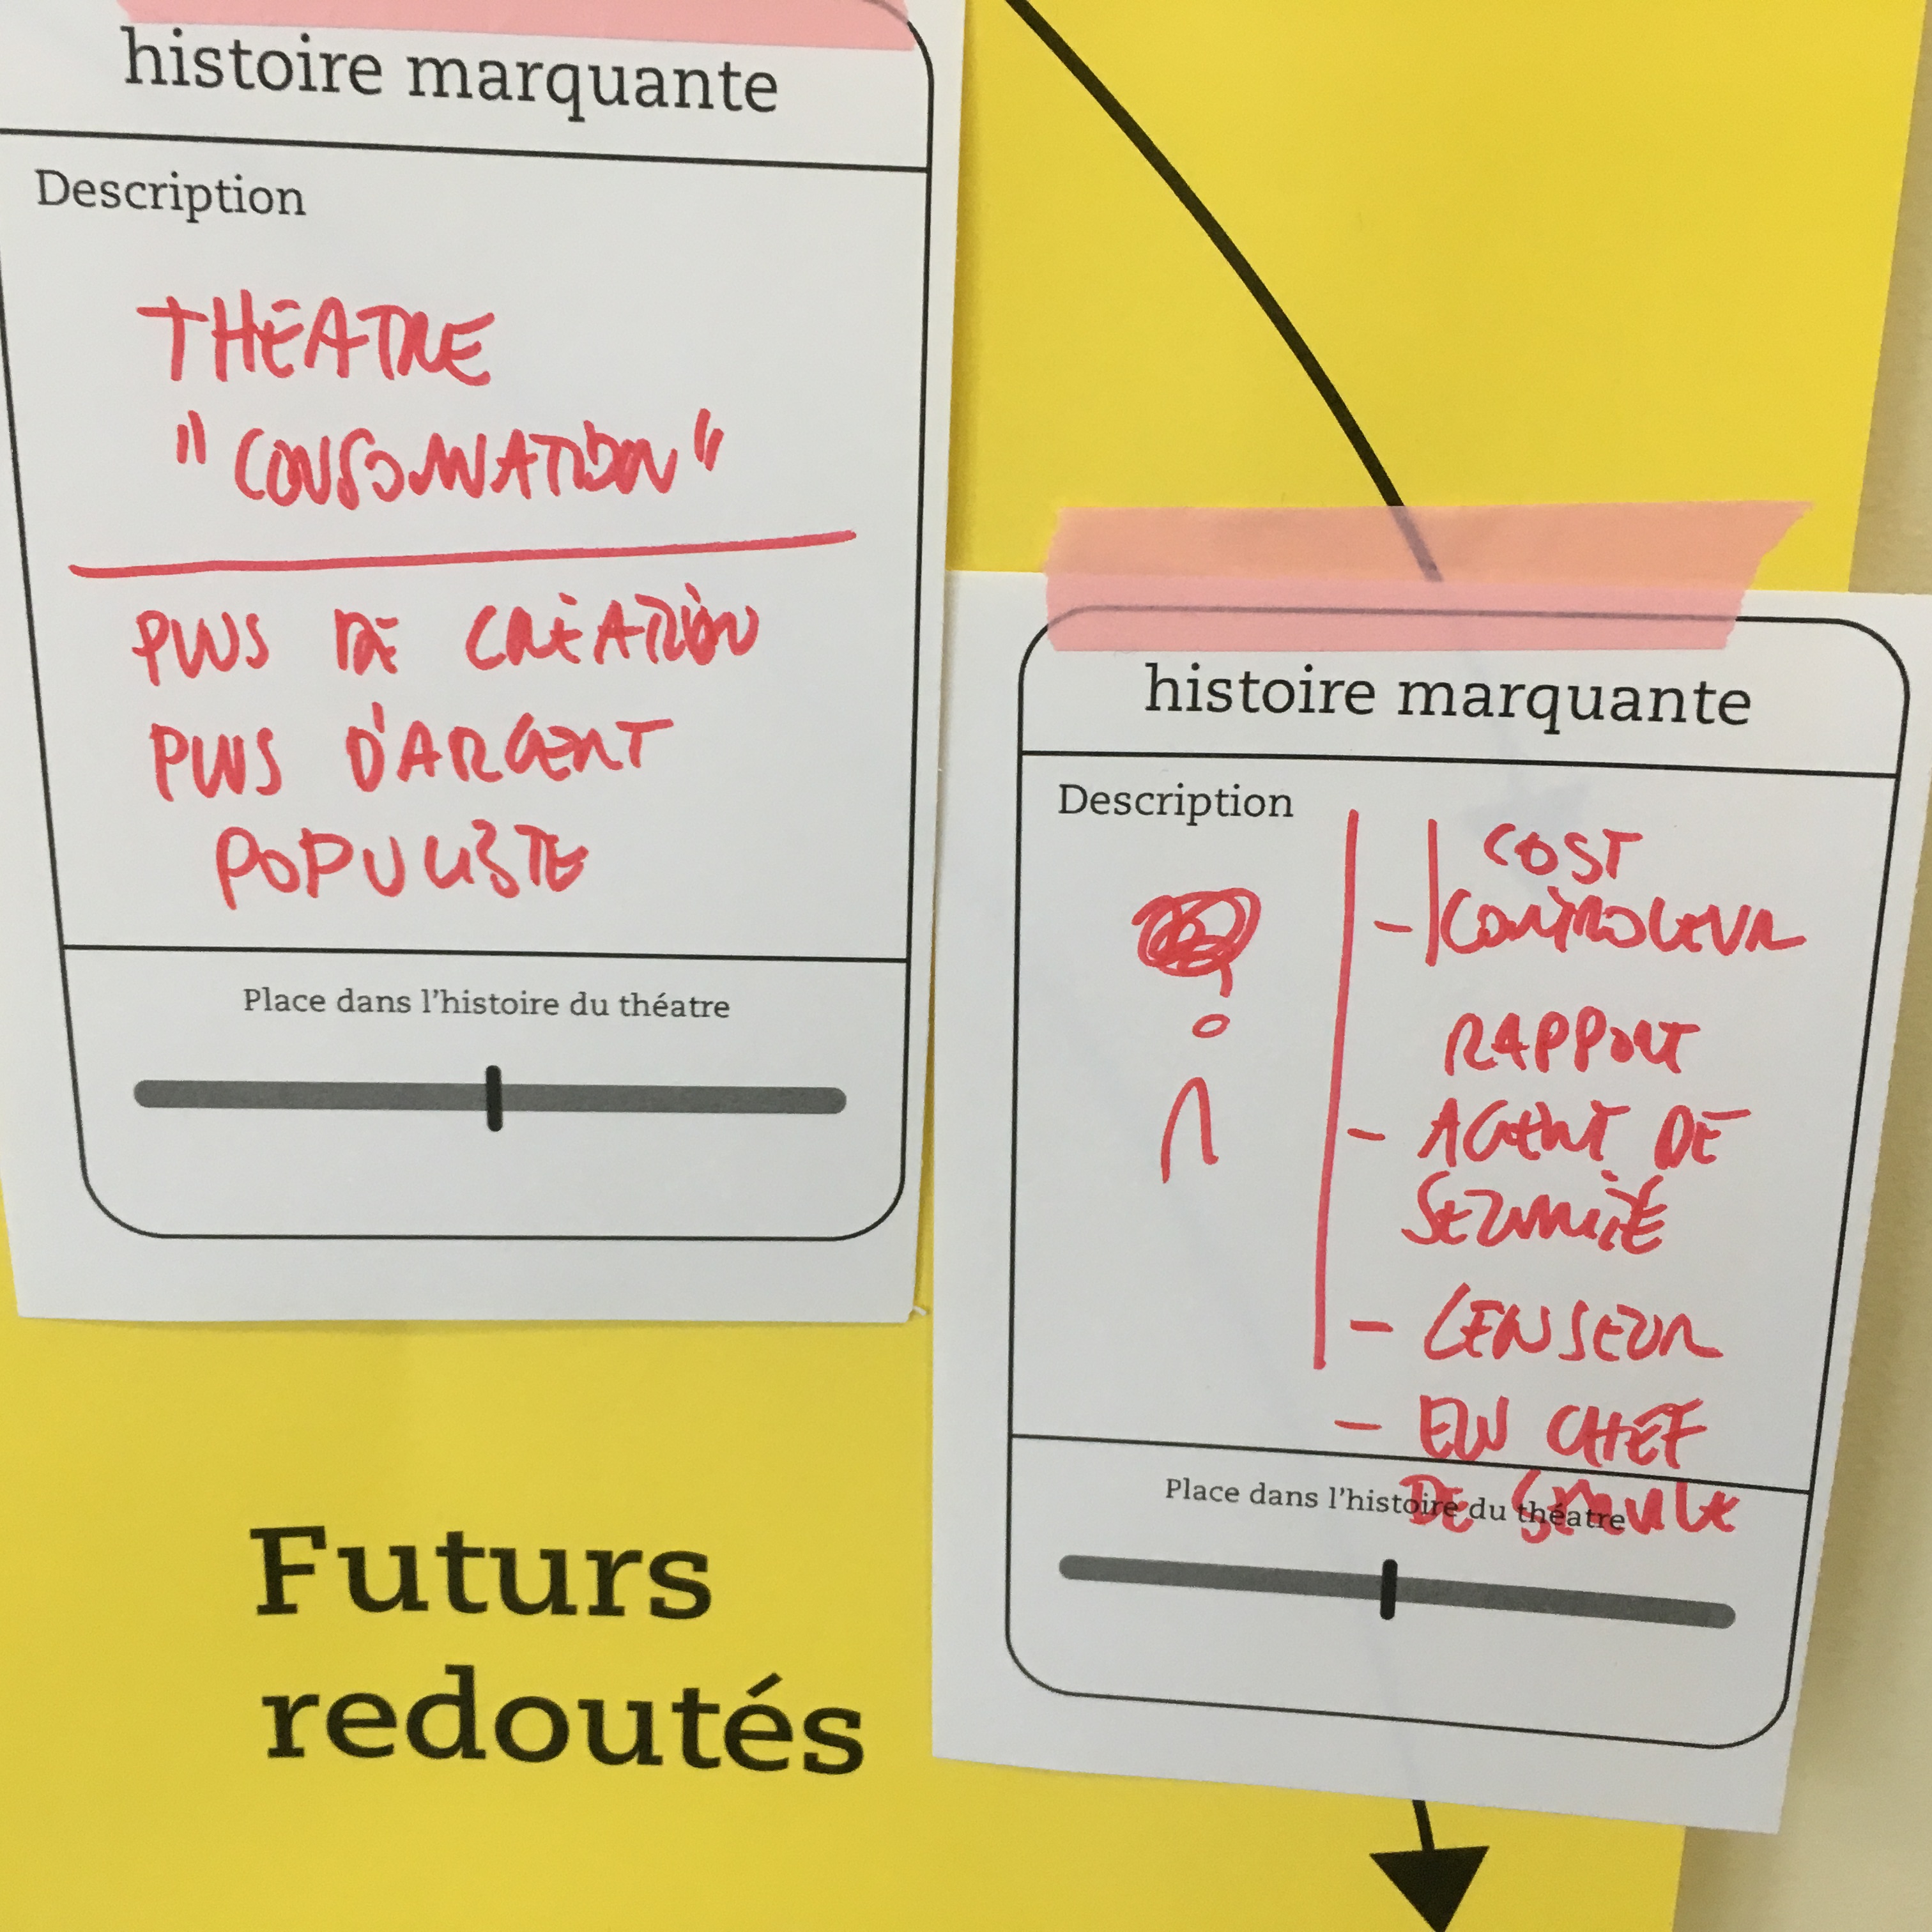 histoire marquante
Description
THÉATRE
"CONSOMATION"
PLUS DE CRÉATION
PLUS D'ARGENT
POPULISTE
Place dans l'histoire du théatre
histoire marquante
Description
COST
- CONTROLEUR
RAPPORT
- AGENT DE
SEZURITÉ
- CENSEUR
- EN CHEF
DE
Place dans l'histoire du théatre
Futurs
redoutés